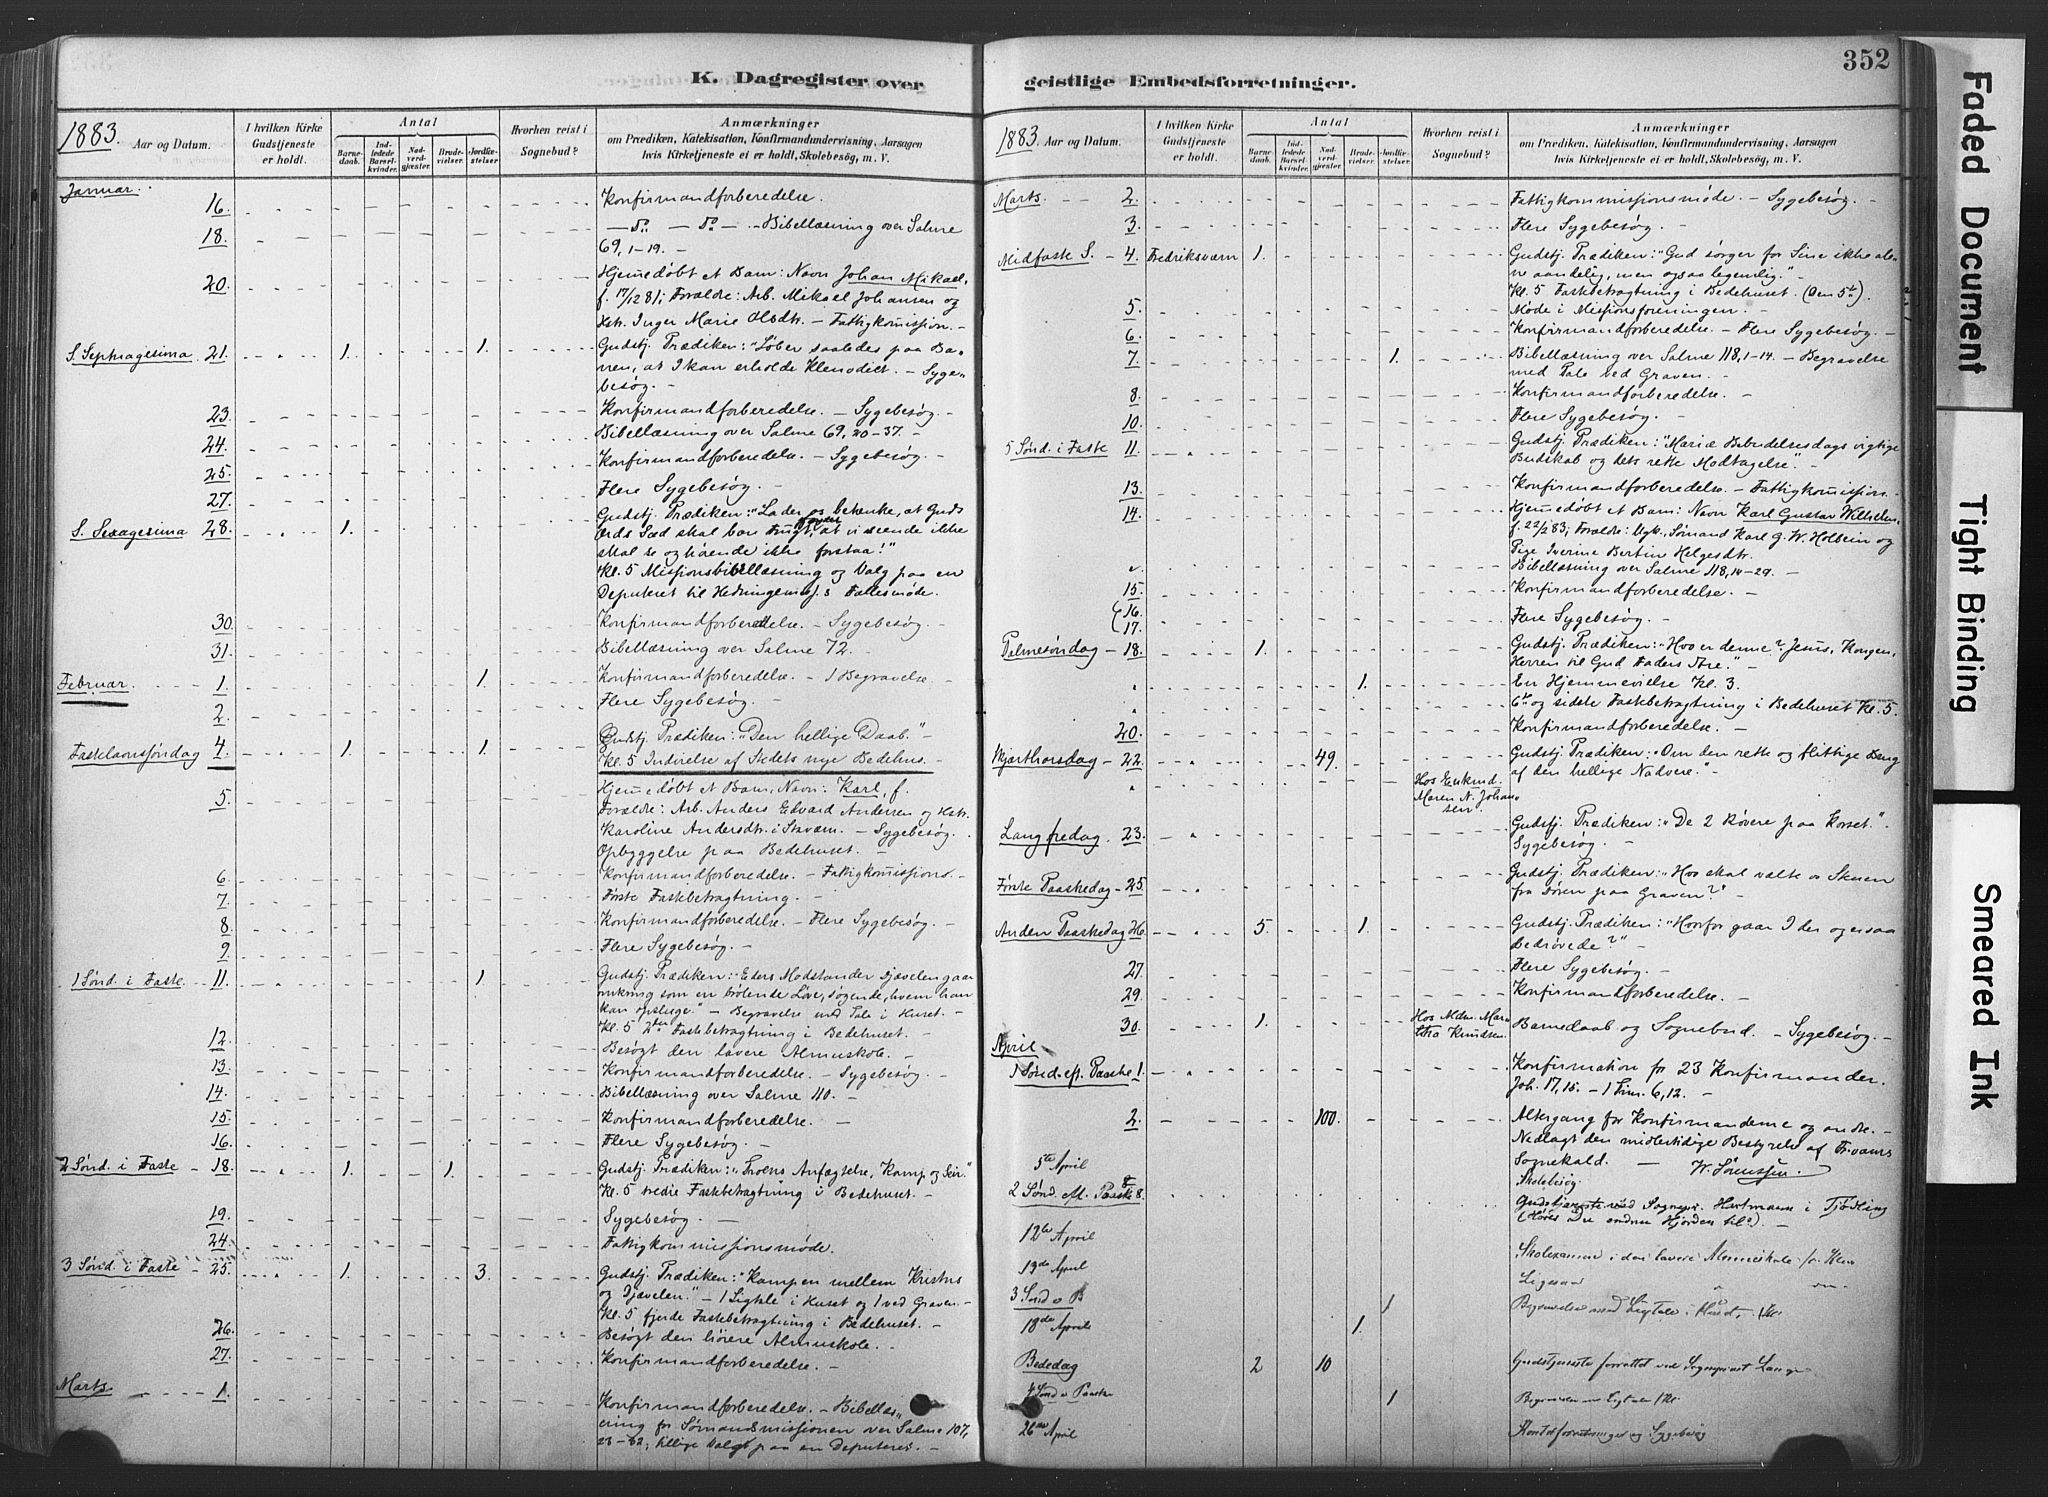 K. Dagregister over
1883.
Aar og Datum.
I hvilken Kirke Gudstjeneste er holdt.
Antal
Barnedaab.
Indledede Barselkvinder.
Nadverdgjester.
Brudevielser.
Jordfæstelser
Hvorhen reist i Sognebud?
Anmærkninger
om Prædiken, Katekisation, Konfirmandundervisning, Aarsagen
hvis Kirketjeneste ei er holdt, Skolebesøg, m. V.
Januar.
16. Konfirmandforberedelse.
18. — Do — Do — Bibellæsning over Salme
69, 1-19. —
20. Hjemmedøbt et Barn: Navn Johan Mikael,
f. 17/12 81; Forældre: Arb. Mikael Johansen og
Hstr. Inger Marie Olsdtr. — Fattigkommission. —
S. Septuagesima 21. 1. 1. Gudstj. Prædiken: "Løber saaledes paa Ba-
nen, at I kan erholde Klenodiet. — Syge-
besøg. —
23. Konfirmandforberedelse. — Sygebesøg. —
24. Bibellæsning over Salme 69, 20-37. —
25. Konfirmandforberedelse. — Sygebesøg. —
27. Flere Sygebesøg. —
S. Sexagesima 28. 1. Gudstj. Prædiken: "Lader os betænke, at Guds
Ords Sæd skal bære Frugt, at vi seende ikke
skal se og hørende ikke forstaa!"
Kl. 5 Missionsbibellæsning og Valg paa en
Deputeret til Hedningemis.s Fællesmøde.
30. Konfirmandforberedelse. — Sygebesøg. —
31. Bibellæsning over Salme 72. —
Februar. 1. 1. Konfirmandforberedelse. — 1 Begravelse.
2. Flere Sygebesøg. —
Fastelavnssøndag 4. 1. 1. Gudstj. Prædiken: "Den hellige Daab." —
Kl. 5 Indvielse af Stedets nye Bedehus. —
5. Hjemmedøbt et Barn, Navn: Karl, f.
Forældre: Arb. Anders Edvard Andersen og Hstr.
Karoline Andersdtr. i Stavern. — Sygebesøg. —
Opbyggelse paa Bedehuset. —
6. Konfirmandforberedelse. — Fattigkommission. —
7. Første Fastebetragtning. —
8. Konfirmandforberedelse. — Flere Sygebesøg. —
9. Flere Sygebesøg. —
1 Sønd. i Faste. 11. 1 Gudstj. Prædiken: Eders Modstander Djævelen gaar
omkring som en brølende Løve, søgende, hvem han
kan opsluge" — Begravelse med Tale i Huset. —
Kl. 5 2den Fastebetragtning i Bedehuset. —
12. Besøgt den lavere Almuskole. —
13. Konfirmandforberedelse. — Sygebesøg. —
14. Bibellæsning over Salme 110. —
15. Konfirmandforberedelse. —
16. Flere Sygebesøg. —
2 Sønd. i Faste 18. 1. 1. Gudstj. Prædiken: "Troens Anfægtelse, Kamp og Seir."
Kl. 5 tredie Fastebetragtning i Bedehuset. —
19. Sygebesøg. —
24. Fattigkommissionsmøde.
3 Sønd. i Faste 25. 1. 3. Gudstj. Prædiken: "Kampen mellem Kristus
og Djævelen." — 1 Ligtale i Huset og 1 ved Graven. —
Kl. 5 fjerde Fastebetragtning i Bedehuset. —
26. Besøgt den høiere Almuskole. —
27. Konfirmandforberedelse. —
Marts 1. Konfirmandforberedelse. — Bibellæs-
ning for Sømandsmissionen over Salme 107,
23-32; tillige Valgt paa en Deputeret. —
geistlige Embedsforretninger.
352
1883.
Aar og Datum.
I hvilken Kirke Gudstjeneste er holdt.
Antal
Barnedaab.
Indledede Barselkvinder.
Nadverdgjester.
Brudevielser.
Jordfæstelser.
Hvorhen reist i Sognebud?
Anmærkninger
om Prædiken, Katekisation, Konfirmandundervisning, Aarsagen
hvis Kirketjeneste ei er holdt, Skolebesøg, m. V.
Marts. 2. Fattigkommissionsmøde. — Sygebesøg. —
3. Flere Sygebesøg. —
Midfaste S. 4. Fredriksværn 1. Gudstj. Prædiken: "Gud sørger for Sine ikke ale-
ne aandelig, men ogsaa legemlig." —
Kl. 5 Fastebetragtning i Bedehuset. (Den 5te).
5. Møde i Missionsforeningen. —
6. Konfirmandforberedelse. — Flere Sygebesøg. —
7. 1. Bibellæsning over Salme 118, 1-14. — Begravelse
med Tale ved Graven. —
8. Konfirmandforberedelse. —
10. Flere Sygebesøg. —
5 Sønd. i Faste 11. Gudstj. Prædiken: "Mariæ Bebudelsesdags vigtige
Budskab og dets rette Modtagelse". —
13. Konfirmandforberedelse. — Fattigkommission. —
14. Hjemmedøbt et Barn: Navn Karl Gustav Wilhelm,
f. 22/2 83; Forældre: Ugk. Sømand Karl G. W. Holbein og
Pige Iverine Bertin Helgesdtr.
Bibellæsning over Salme 118, 14-29. —
15. Konfirmandforberedelse. —
16.
17. Flere Sygebesøg. —
Palmesøndag 18. 1. Gudstj. Prædiken: "Hvo er denne? Jesus, Kongen,
Herren til Gud Faders Ære." —
1. En Hjemmevielse Kl. 3.
6te og sidste Fastebetragtning i Bedehuset Kl. 5.
20. Konfirmandforberedelse. —
Skjærthorsdag 22. 49. Gudstj. Prædiken: "Om den rette og flittige Brug
af den hellige Nadvere." —
Hos Enkmd.
Maren N. Johan-
sen.
Langfredag. 23. Gudstj. Prædiken: "De 2 Røvere paa Korset." —
Sygebesøg. —
Første Paaskedag 25. Gudstj. Prædiken: "Hvo skal vælte os Stenen
fra Døren paa Graven?" —
Anden Paaskedag 26. 5. 1. Gudstj. Prædiken: "Hvorfor gaar I der og ersaa
bedrøvede?" —
27. Flere Sygebesøg. —
29. Konfirmandforberedelse. —
30. 1. Hos Mdm. Mar-
tha Knudsen. Barnedaab og Sognebud. — Sygebesøg. —
April
1 Sønd. ef. Paaske 1. Konfirmation for 23 Konfirmander.
Joh. 17, 15. — 1 Tim. 6, 12. —
2. 100. Altergang for Konfirmanderne og andre. —
Nedlagt den midlertidige Bestyrelse af Fr.værns
Sognekald. — W. Sørenssen.
5te April Skolebesøg.
2 Sønd. ef. Paaske 8. Gudstjeneste ved Sognepr. Hartmann i Tjødling
12te April Skolexamen i den lavere Almueskole
13de April Ligesaa
3 Sønd e P 1 Begravelse med Ligtale i Huset,
18de April 1.
Bededag 2 10 Gudstjeneste forrettet ved Sognepræst Lange
4 Sønd e Paaske 1 Begravelse
26de April Kontorforretninger og Sygebesøg
Faded Document
Tight Binding
Smeared Ink